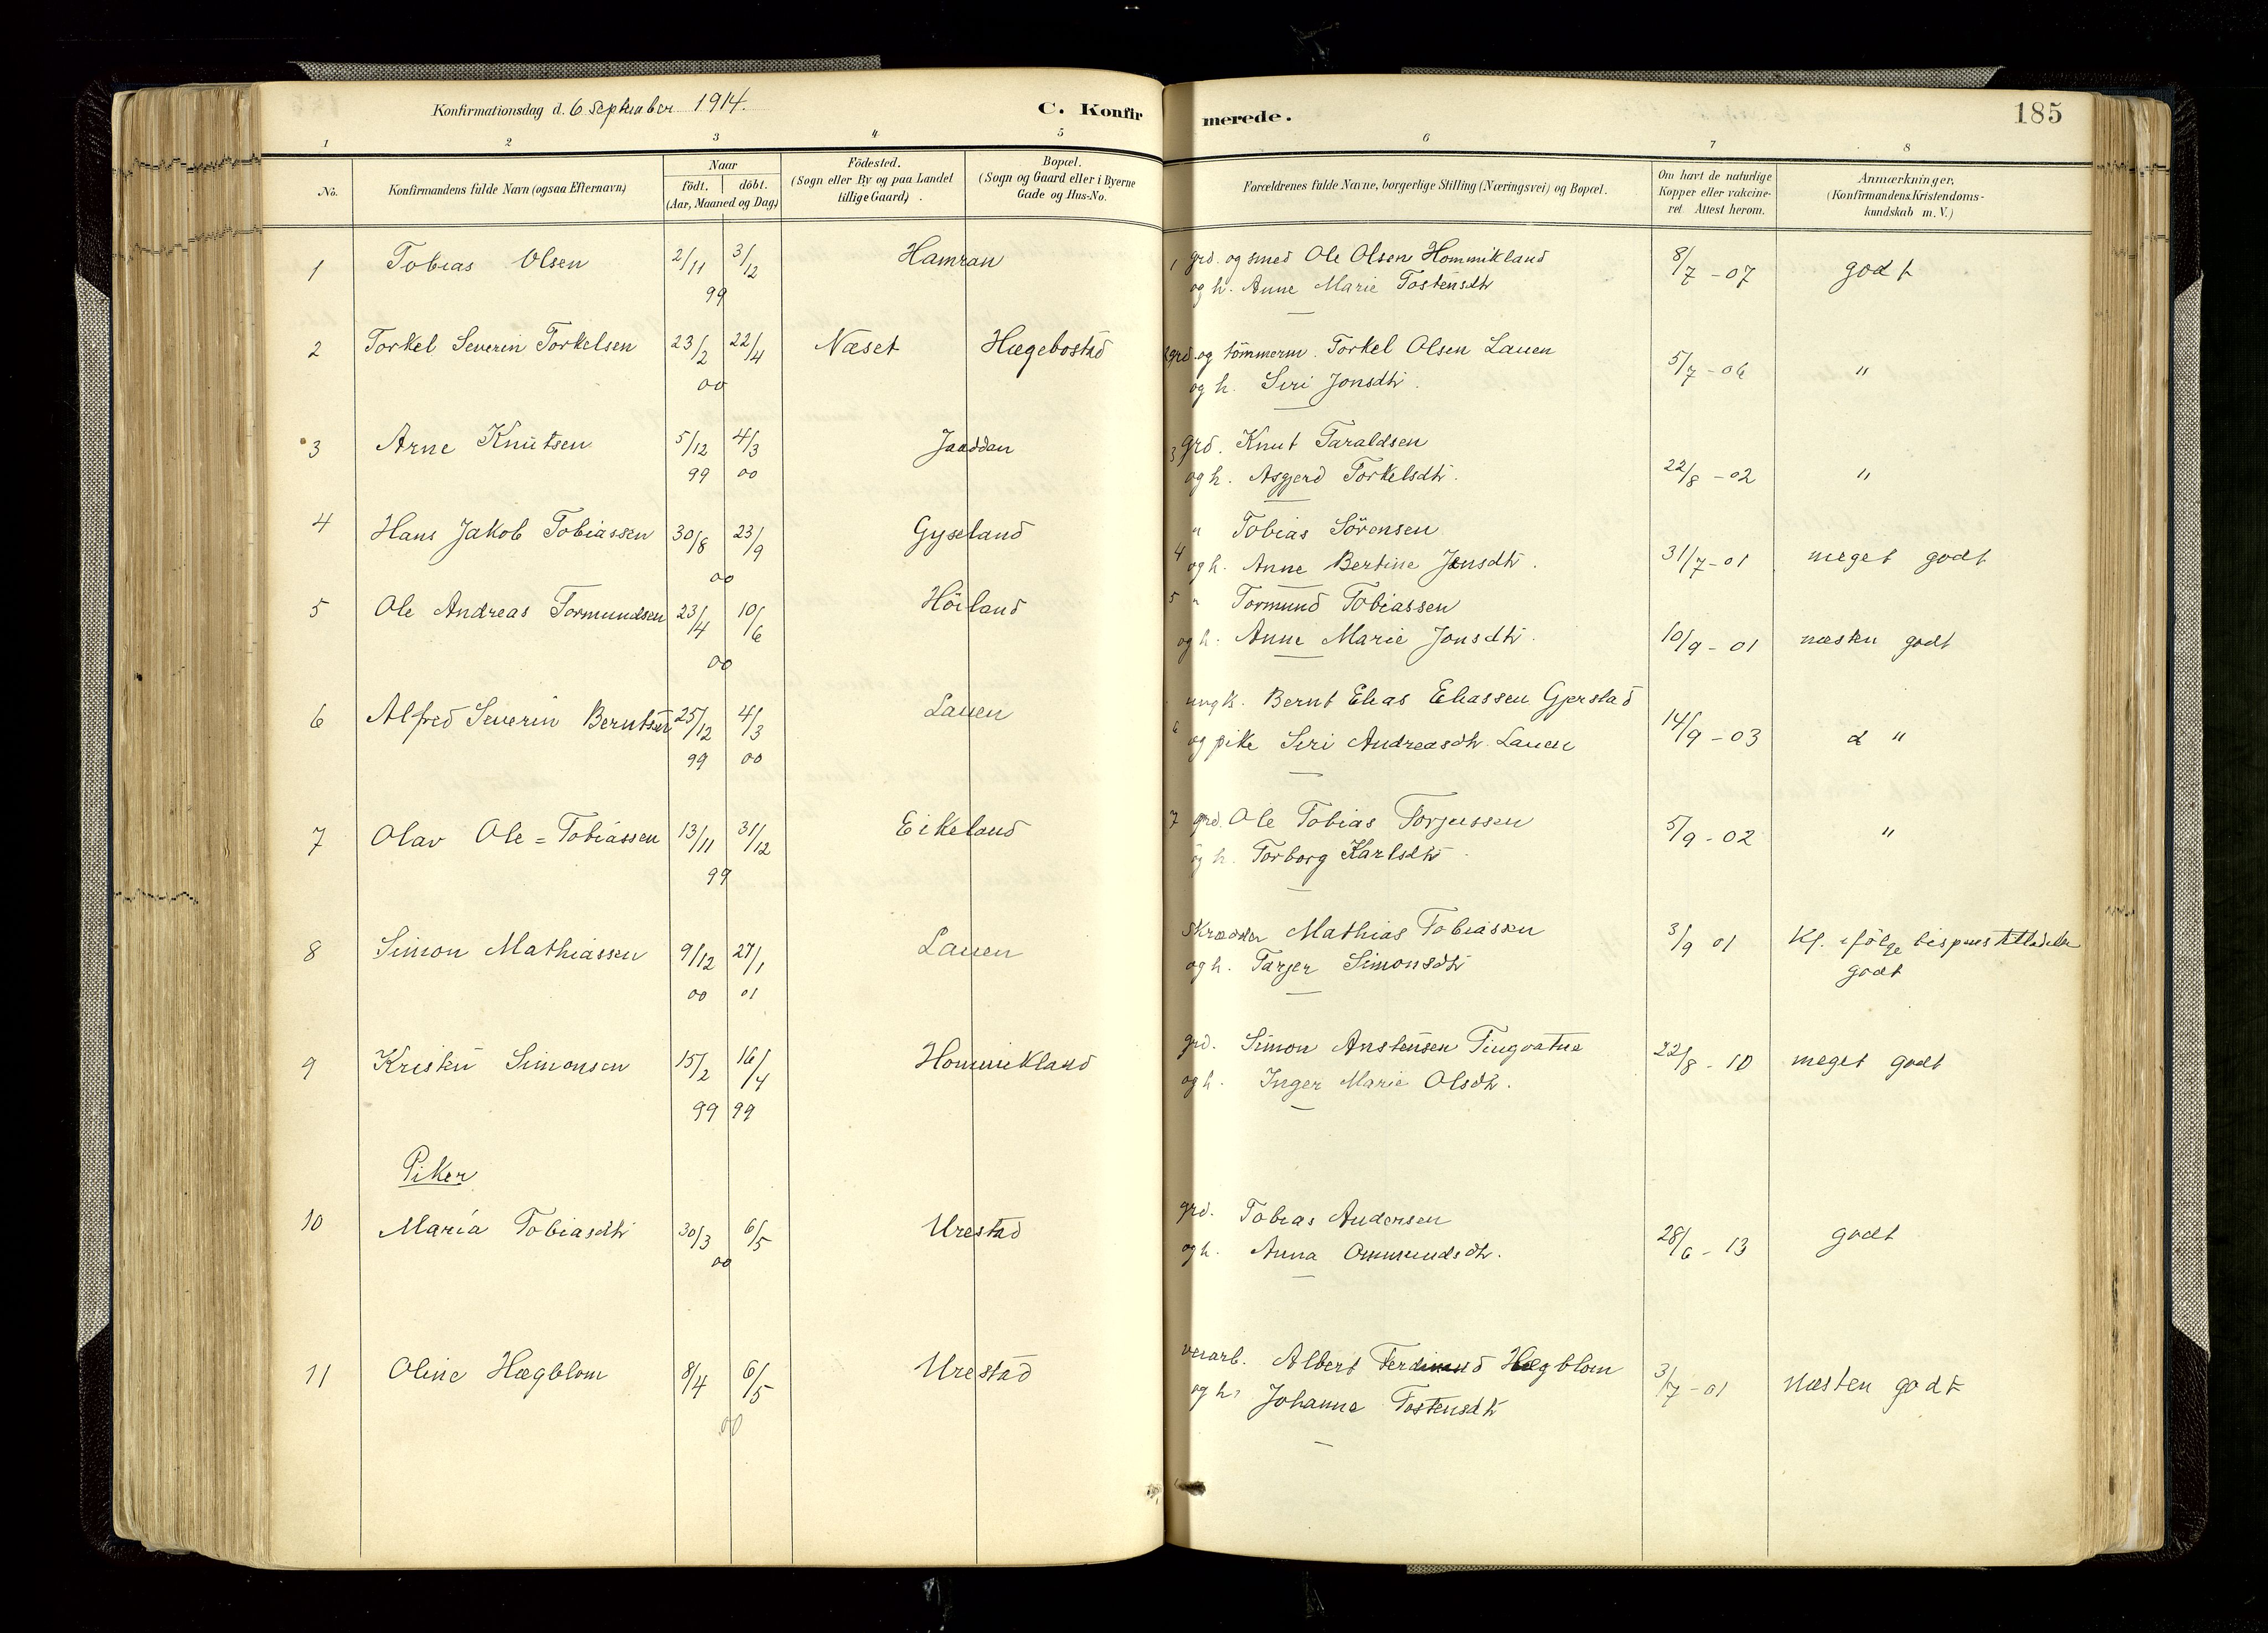 Konfirmationsdag d. 6 September 1914.
C. Konfirmerede.
185
1 2 3 4 5 6 7 8
No.
Konfirmandens fulde Navn (ogsaa Efternavn)
Naar
födt. döbt.
(Aar, Maaned og Dag)
Födested.
(Sogn eller By og paa Landet
tillige Gaard).
Bopæl.
(Sogn og Gaard eller i Byerne
Gade og Hus-No.
Forældrenes fulde Navne, borgerlige Stilling (Næringsvei) og Bopæl.
Om havt de naturlige
Kopper eller vakcine-
ret Attest herom.
Anmærkninger,
(Konfirmandens Kristendoms-
kundskab m. V.)
1 Tobias Olsen 2/11 3/12 Hamran 1 grd. og smed Ole Olsen Hommikland 8/7 - 07 godt
99 og h. Anne Marie Tostensdtr
2 Torkel Severin Torkelsen 23/2 22/4 Næset Hægebostad 2 grd. og tömmerm. Torkel Olsen Lauen 5/7 - 06 "
00 og h. Siri Jonsdtr.
3 Arne Knutsen 5/12 4/3 Jaaddan 3 grd. Knut Taraldsen
99 00 og h. Asgjerd Torkelsdtr. 22/8 - 02 "
4 Hans Jakob Tobiassen 30/8 23/9 Gyseland " Tobias Sörensen
00 4 og h. Anne Bertine Jensdtr. 31/7 - 01 meget godt
5 Ole Andreas Tormundsen 23/4 10/6 Höiland 5 " Tormund Tobiassen
00 og h. Anne Marie Jonsdtr. 10/9 - 01 næsten godt
6 Alfred Severin Berntsen 25/12 4/3 Lauen ungk. Bernt Elias Eliassen Gjerstad
99 00 6 og pike Siri Andreasdtr. Lauen 14/9 - 03 d "
7 Olav Ole=Tobiassen 13/11 31/12 Eikeland 7 grd. Ole Tobias Torjussen 5/9 - 02 "
99 og h. Torborg Karlsdtr.
8 Simon Mathiassen 9/12 27/1 Lauen Skrædder Mathias Tobiassen 3/9 01 Kf. ifölge bispens tilladelse
00 01 og h. Tarjer Simonsdtr godt
9 Kristen Simonsen 15/2 16/4 Hommikland grd. Simon Anstensen Tingvatne 22/8 - 10 meget godt
99 99 og h. Inger Marie Olsdtr.
Piker
10 Maria Tobiasdtr 30/3 6/5 Urestad grd. Tobias Andersen 28/6 - 13 godt
00 og h. Anna Ommundsdtr.
11 Oline Hægblom 8/4 6/5 Urestad Albert Ferdinand Hægblom 3/7 - 01 næsten godt
00 og h. Johanne Tostensdtr